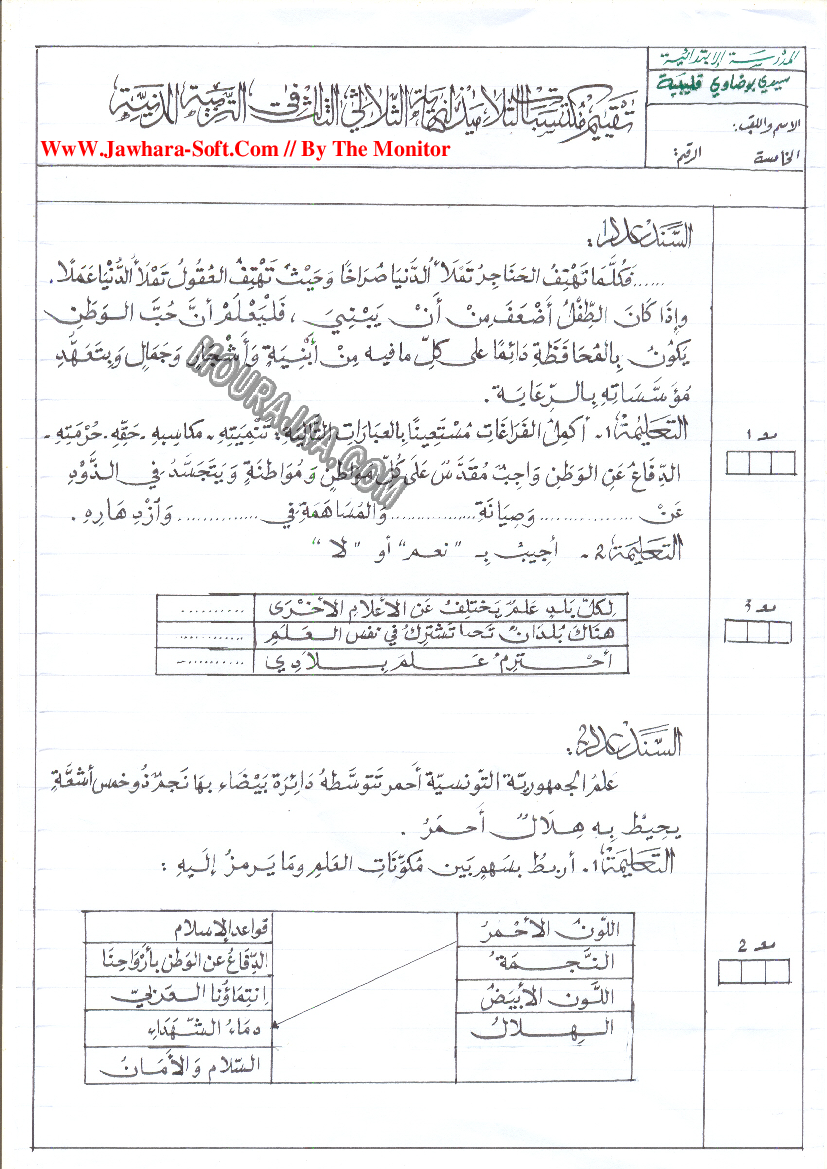 المدرسة الابتدائية
سيدي بوضاوي قليبية
تقييم مكتسبات التلاميذ لنهاية الثلاثي الثالث في التربية المدنية
WwW.Jawhara-Soft.Com // By The Monitor
الاسم واللقب:
الخامسة الرقم:
السند عدد1:
......فكلّما تهتِفُ الحناجرُ تملأُ الدّنيا صُراخًا وحيثُ تهتِفُ العُقولُ تملأُ الدُّنيا عملًا.
وإذا كانَ الطّفلُ أضعفَ مِنْ أنْ يبْنيَ، فليعْلمْ أنَّ حُبَّ الوَطَنِ
يكونُ بالمُحافظةِ دائمًا على كلِّ ما فيه مِنْ أبْنِيَةٍ وأشْجارٍ وَجَمالٍ وبتعهُّدِ
مُؤسّساتِهِ بالرّعاية.
التعليمة1- أكملُ الفَراغَاتِ مُسْتَعِينًا بالعباراتِ التّاليةِ: تنْمِيتِهِ - مكاسبِهِ - حَقِّهِ - حُرْمَتِهِ -
الدّفاعُ عنِ الوَطنِ واجبٌ مُقدّسٌ على كُلّ مواطنٍ ومُواطنَةٍ ويتجسّدُ في الذّوْدِ
عَنْ ................ وَصِيانَةِ ................ والمُسَاهَمةِ في ............. وَازْدِهَارِهِ.
التعليمة2- أجيبُ بـ "نعم" أو "لا"
لكلّ بلدٍ علمٌ يَختلِفُ عن الأعْلامِ الأُخْرَى ..........
هناكَ بُلدانٌ تشتركُ في نفس العـلمِ ..........
أحْترمُ عـلمَ بـلادِي ..........
السّند عدد2:
علمُ الجمهوريّة التّونسيّة أحمر تتوسّطه دائرة بيْضاء بها نجمٌ ذو خمس أشعّةٍ
يحيطُ به هلالٌ أحمرُ.
التّعليمة1- أربطُ بسهمٍ بين مُكوّناتِ العَلمِ وما يَرمزُ إليهِ:
اللّونُ الأحْمرُ
النّجمةُ
اللّونُ الأبيضُ
الهلالُ
قواعد الإسلام
الدّفاعُ عن الوَطنِ بأرْواحِنَا
انتماؤُنا العـربيّ
دماءُ الشّهداءِ
السّلام والأمانُ
مع1
مع3
مع2
MOURAJAA.COM